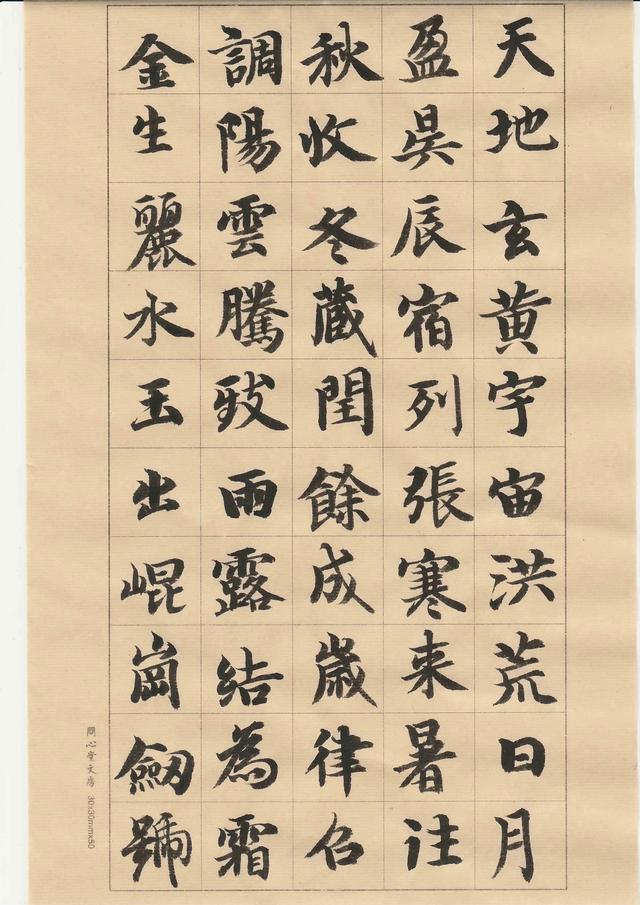 天地玄黄宇宙洪荒日月
盈昃辰宿列張寒来暑往
秋收冬蔵閏餘成歲律召
調陽雲騰致雨露結為霜
金生麗水玉出崐崗劒號
問心堂文房 30x30mmx50